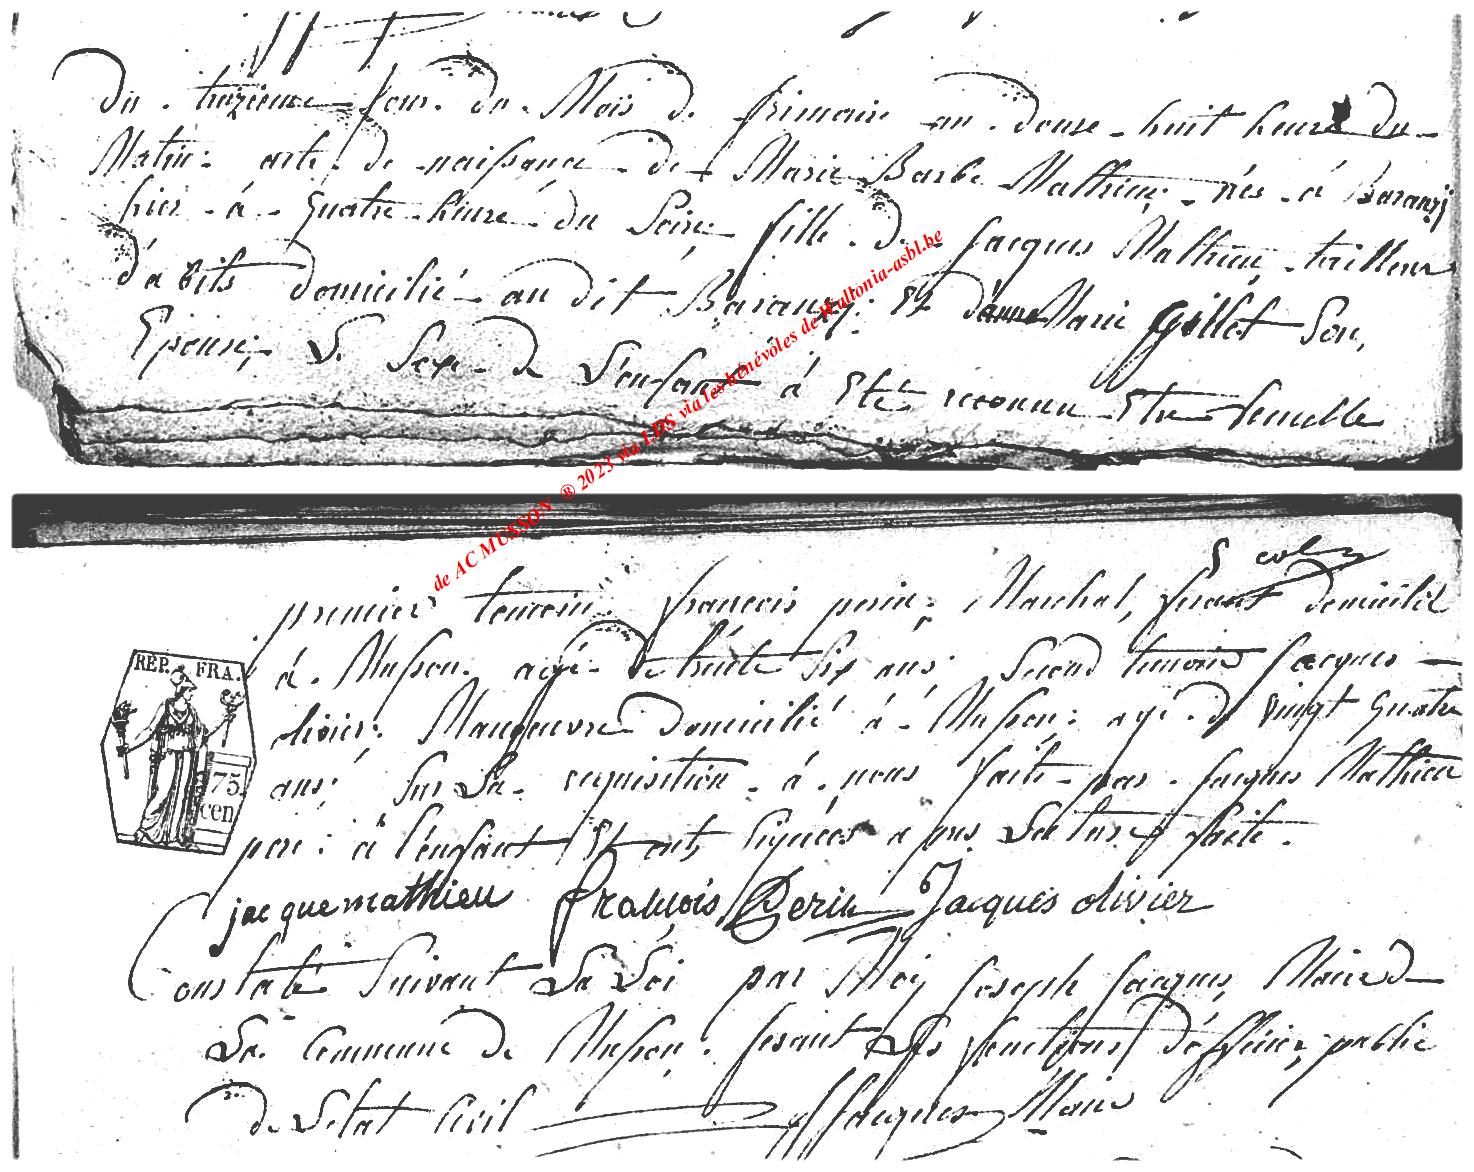 du treizieme jour du Mois de frimaire an douse huit heure du
Matin. acte de naissance de Marie Barbe Mathieu, née à Baranzÿ
hier à quatre heure du Soire fille de jacques Mathieu tailleur
d'abits domicilié au dit Baranzy. Et d'anne Marie gillet Son
Epouse, Le Sexe de L'enfant à Eté reconnu Etre femelle
premier temoin françois perin, Marchal ferant domicilié
à Musson agé de trente six ans Second temoin jacques
olivier, Manoeuvre Domicilié à Musson: agé de vingt quatre
ans Sur La requisition à nous faite par jacques Mathieu
pere à l'enfant Et ont signées apres Lecture faite.
jacque mathieu françois Perin Jacques olivier
Constaté Suivant La Loi par Moi joseph jacques, Maire de
La Commune de Musson, fesant Les fonctions d'officier public
de Letat Civil jacques Maire
RÉP. FRA.
75.
cen
de AC MUSSON ® 2023 via LDS via les bénévoles de Wallonia-asbl.be